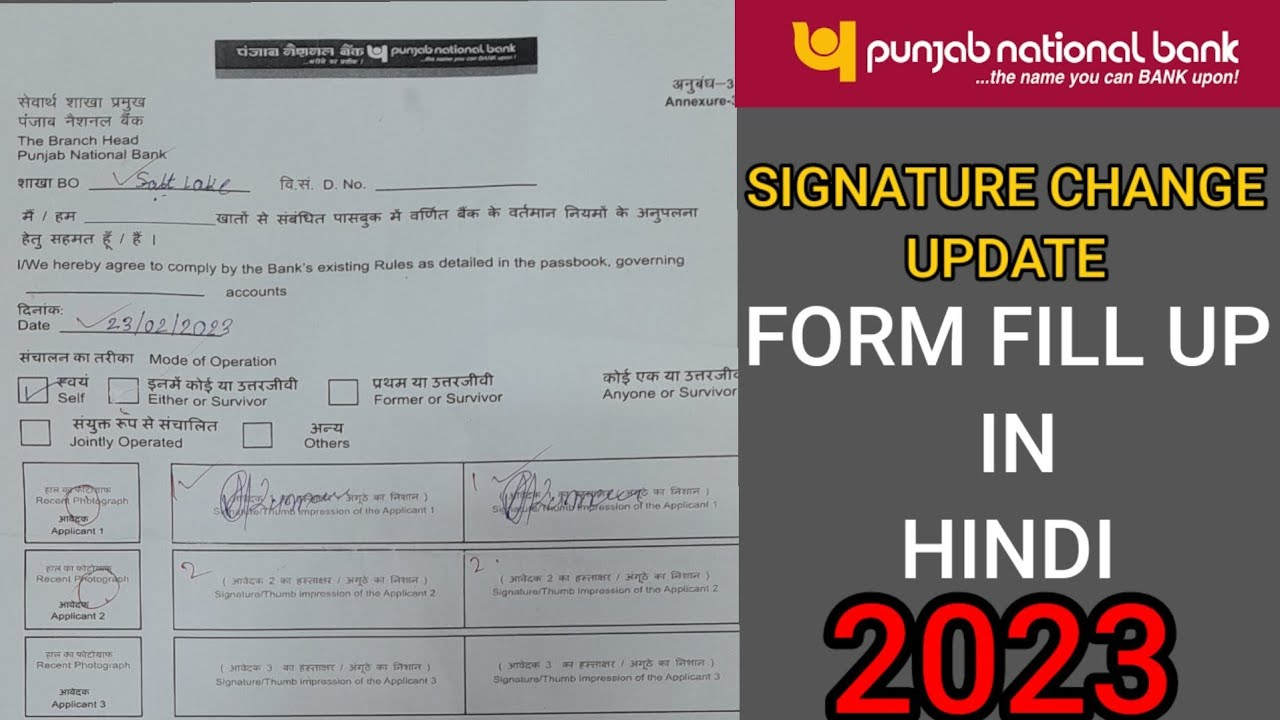 पंजाब नैशनल बैंक punjab national bank
...भरोसे का प्रतीक ! ...the name you can BANK upon!
अनुबंध-3
Annexure-3
सेवार्थ शाखा प्रमुख
पंजाब नैशनल बैंक
The Branch Head
Punjab National Bank
शाखा BO Salt Lake वि.सं. D. No.
मैं / हम खातों से संबंधित पासबुक में वर्णित बैंक के वर्तमान नियमों के अनुपलना
हेतु सहमत हूँ / हैं ।
I/We hereby agree to comply by the Bank's existing Rules as detailed in the passbook, governing
accounts
दिनांक:
Date 23/02/2023
संचालन का तरीका Mode of Operation
स्वयं इनमें कोई या उत्तरजीवी प्रथम या उत्तरजीवी कोई एक या उत्तरजीव
Self Either or Survivor Former or Survivor Anyone or Survivor
संयुक्त रूप से संचालित अन्य
Jointly Operated Others
हाल का फोटोग्राफ
Recent Photograph
आवेदक
Applicant 1
1 अंगूठे का निशान )
Signature/Thumb Impression of the Applicant 1
1 का निशान )
Signature/Thumb Impression of the Applicant 1
हाल का फोटोग्राफ
Recent Photograph
आवेदक
Applicant 2
2 ( आवेदक 2 का हस्ताक्षर / अंगूठे का निशान )
Signature/Thumb Impression of the Applicant 2
2. ( आवेदक 2 का हस्ताक्षर / अंगूठे का निशान )
Signature/Thumb Impression of the Applicant 2
हाल का फोटोग्राफ
Recent Photograph
आवेदक
Applicant 3
( आवेदक 3 का हस्ताक्षर / अंगूठे का निशान )
Signature/Thumb Impression of the Applicant 3
( आवेदक 3 का हस्ताक्षर / अंगूठे का निशान )
Signature/Thumb Impression of the Applicant 3
punjab national bank
...the name you can BANK upon!
SIGNATURE CHANGE
UPDATE
FORM FILL UP
IN
HINDI
2023